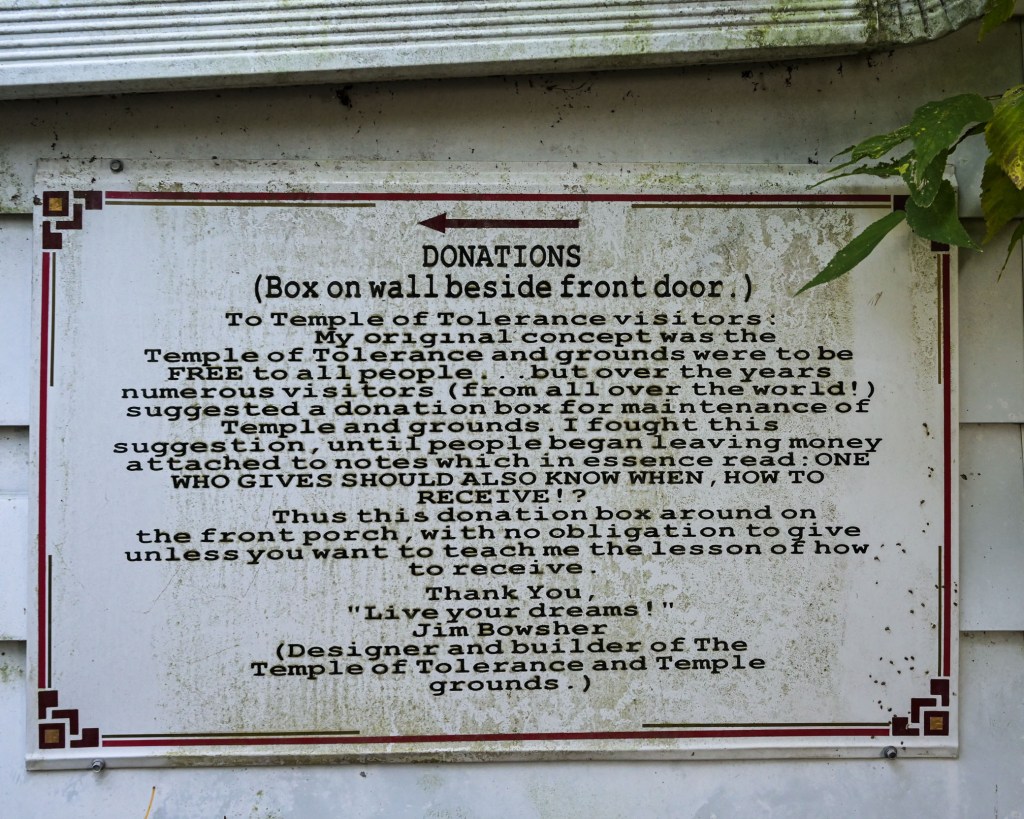 DONATIONS
(Box on wall beside front door.)
To Temple of Tolerance visitors:
My original concept was the
Temple of Tolerance and grounds were to be
FREE to all people...but over the years
numerous visitors (from all over the world!)
suggested a donation box for maintenance of
Temple and grounds. I fought this
suggestion, until people began leaving money
attached to notes which in essence read: ONE
WHO GIVES SHOULD ALSO KNOW WHEN, HOW TO
RECEIVE!?
Thus this donation box around on
the front porch, with no obligation to give
unless you want to teach me the lesson of how
to receive.
Thank You,
"Live your dreams!"
Jim Bowsher
(Designer and builder of The
Temple of Tolerance and Temple
grounds.)